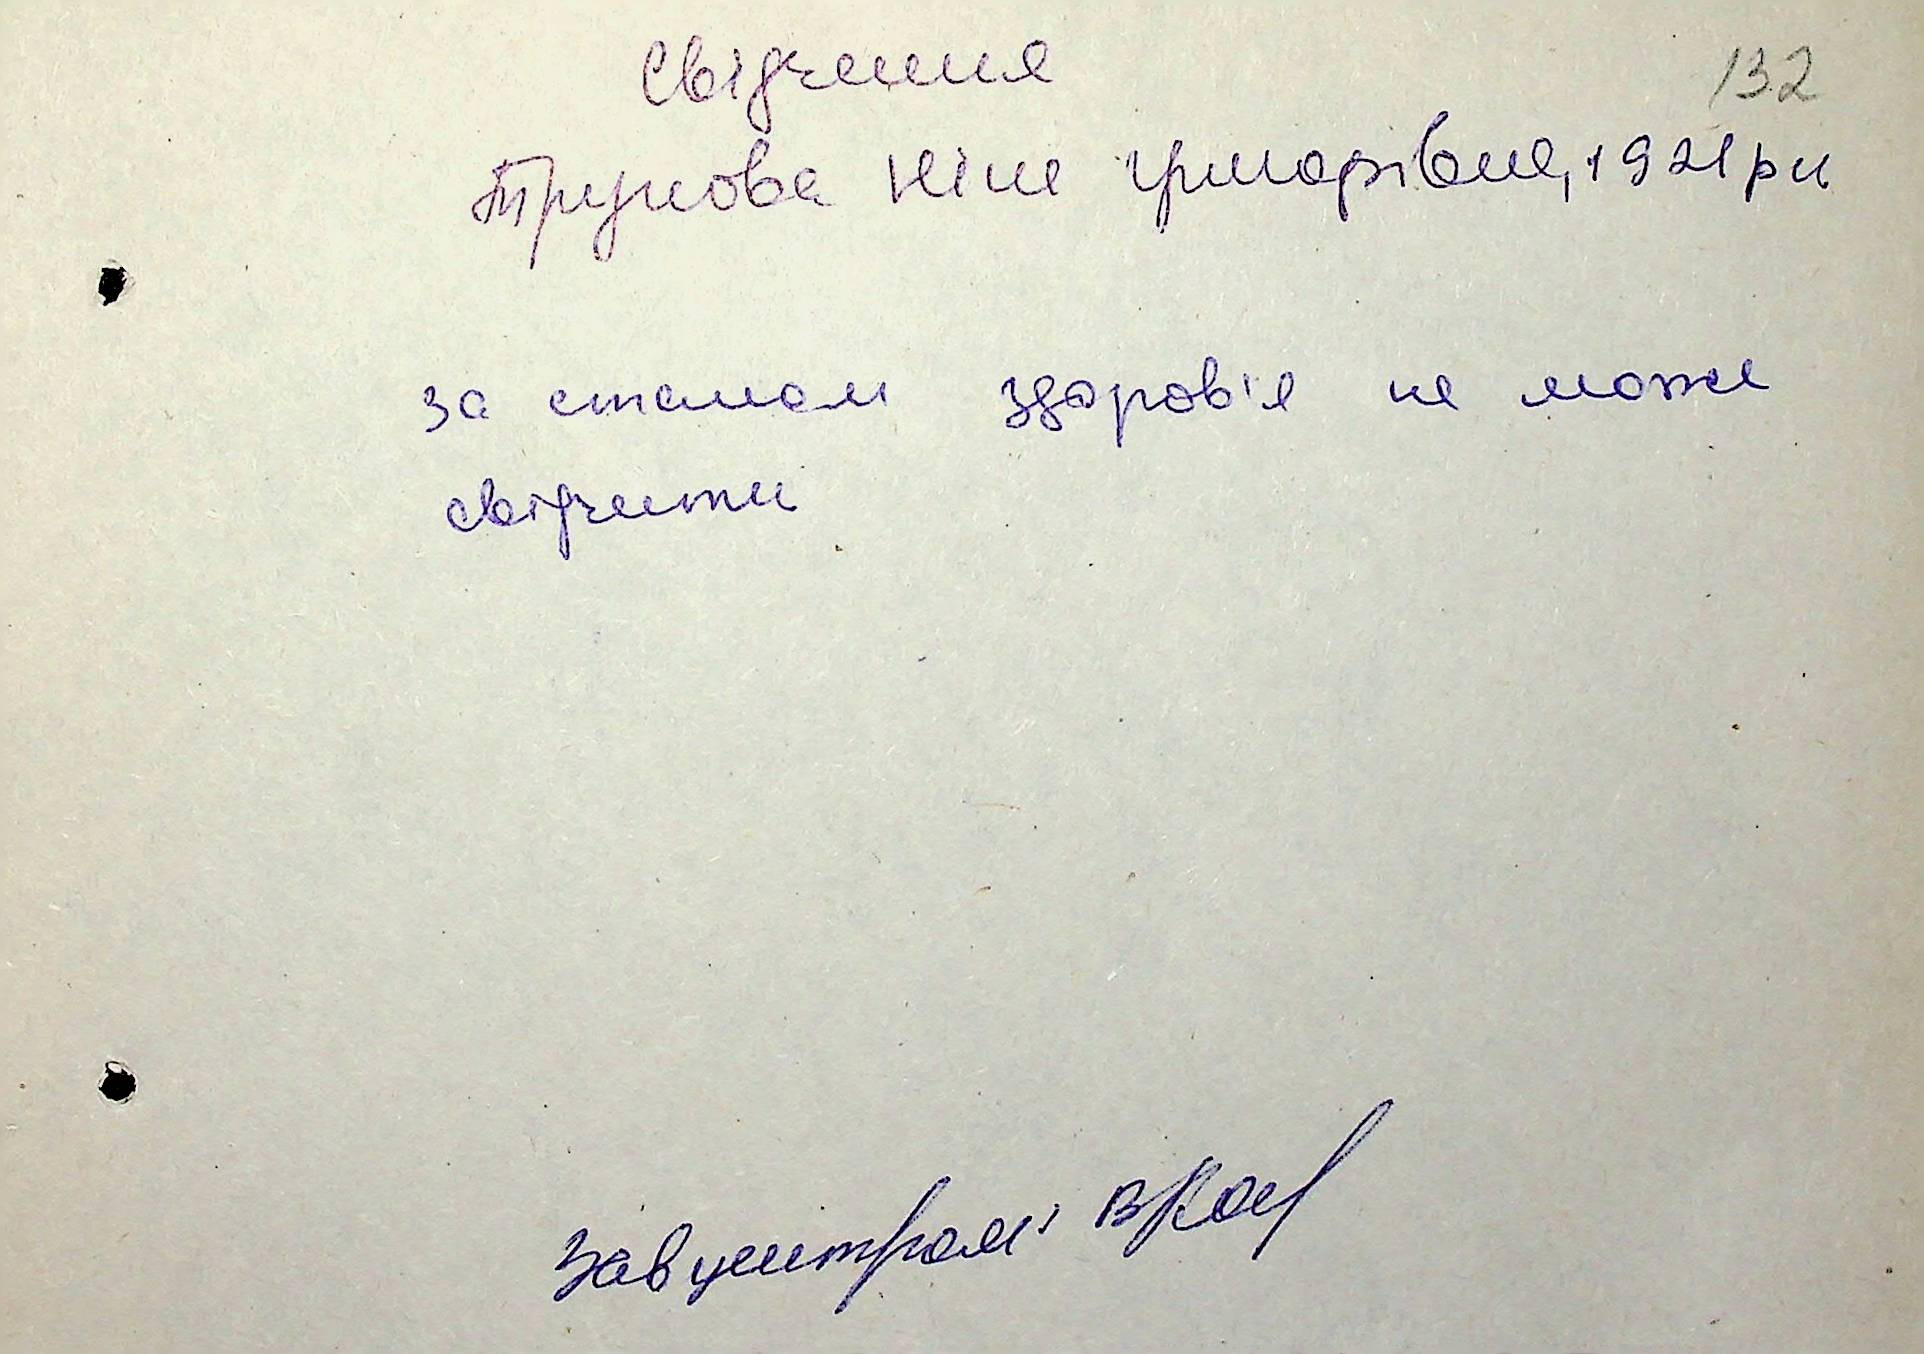 Свідчення
132
Трунова Ніна Григорівна, 1921 р н
за станом здоров'я не може
свідчити
Зав центром: